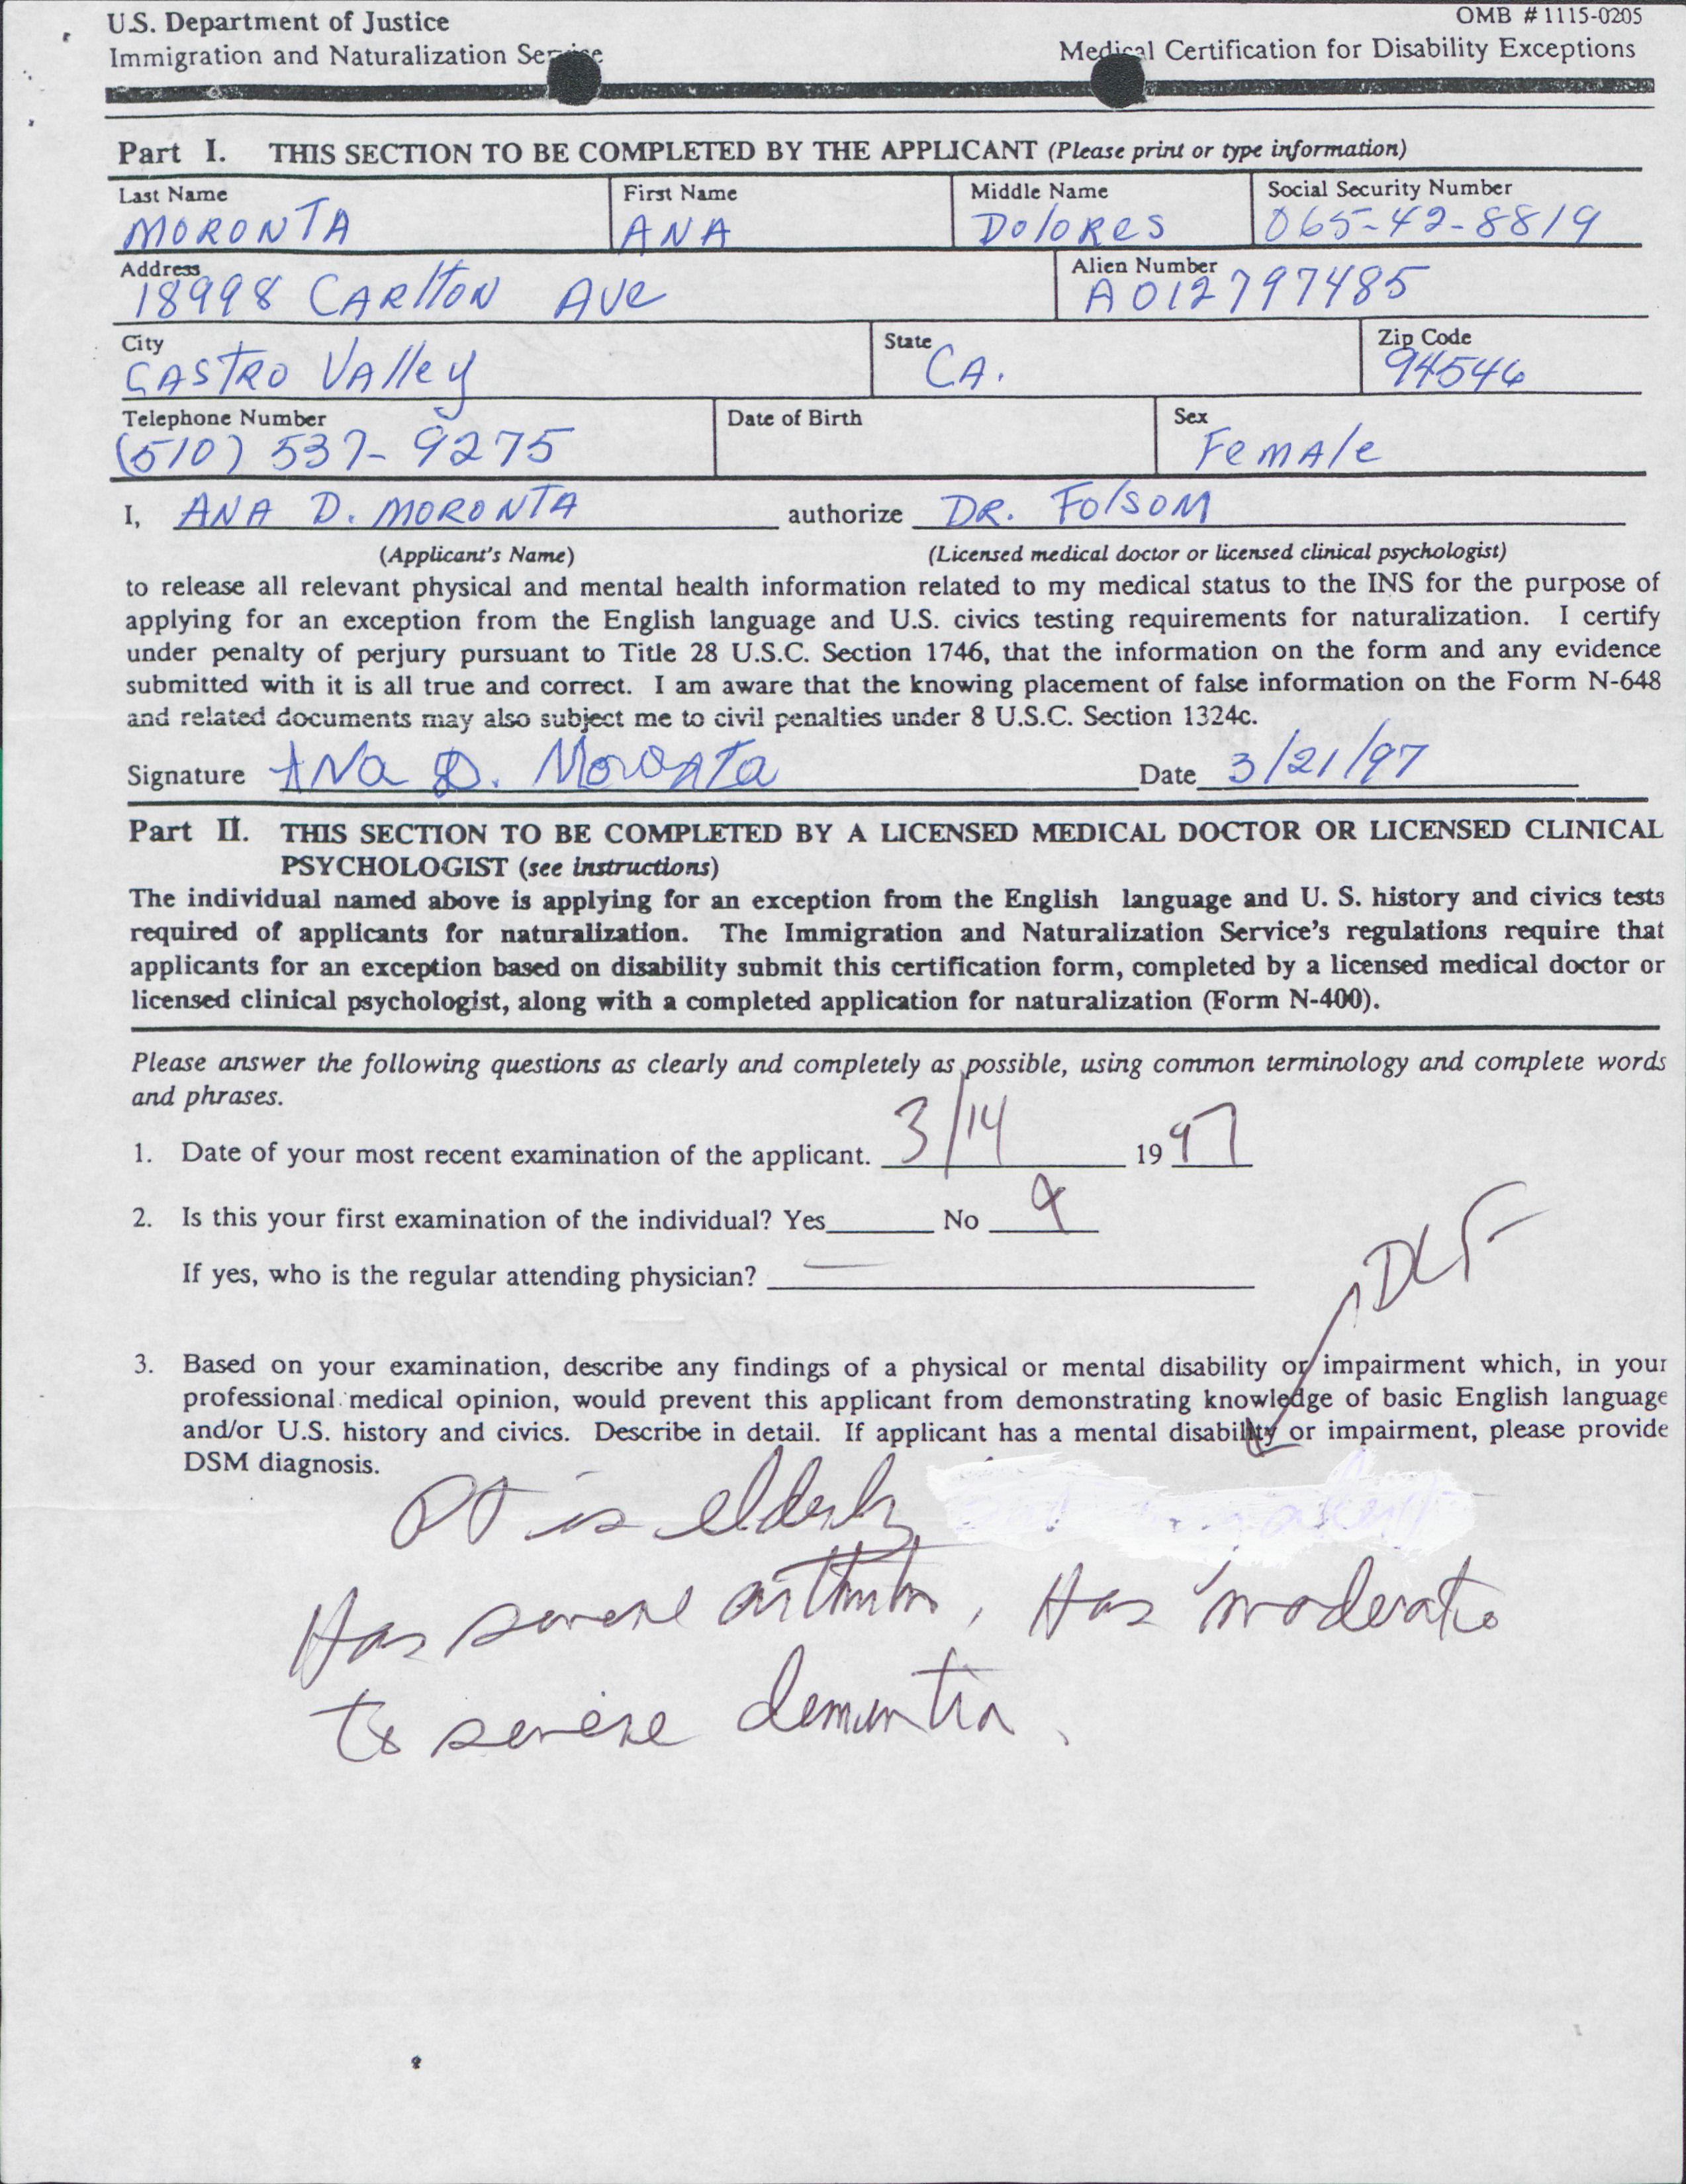 U.S. Department of Justice
OMB # 1115-0205
Immigration and Naturalization Service
Medical Certification for Disability Exceptions
Part I. THIS SECTION TO BE COMPLETED BY THE APPLICANT (Please print or type information)
Last Name First Name Middle Name Social Security Number
MORONTA ANA DoloRes 065-42-8819
Address Alien Number
18998 CARltON AVe A012797485
City State Zip Code
CAStRO VAlley CA. 94546
Telephone Number Date of Birth Sex
(510) 537-9275 FemAle
I, ANA D. MORONTA authorize DR. FolsoM
(Applicant's Name) (Licensed medical doctor or licensed clinical psychologist)
to release all relevant physical and mental health information related to my medical status to the INS for the purpose of
applying for an exception from the English language and U.S. civics testing requirements for naturalization. I certify
under penalty of perjury pursuant to Title 28 U.S.C. Section 1746, that the information on the form and any evidence
submitted with it is all true and correct. I am aware that the knowing placement of false information on the Form N-648
and related documents may also subject me to civil penalties under 8 U.S.C. Section 1324c.
Signature ANa D. Moronta Date 3/21/97
Part II. THIS SECTION TO BE COMPLETED BY A LICENSED MEDICAL DOCTOR OR LICENSED CLINICAL
PSYCHOLOGIST (see instructions)
The individual named above is applying for an exception from the English language and U. S. history and civics tests
required of applicants for naturalization. The Immigration and Naturalization Service's regulations require that
applicants for an exception based on disability submit this certification form, completed by a licensed medical doctor or
licensed clinical psychologist, along with a completed application for naturalization (Form N-400).
Please answer the following questions as clearly and completely as possible, using common terminology and complete words
and phrases.
1. Date of your most recent examination of the applicant. 3/14 1997
2. Is this your first examination of the individual? Yes No X
If yes, who is the regular attending physician?
DLF
3. Based on your examination, describe any findings of a physical or mental disability or impairment which, in your
professional medical opinion, would prevent this applicant from demonstrating knowledge of basic English language
and/or U.S. history and civics. Describe in detail. If applicant has a mental disability or impairment, please provide
DSM diagnosis.
Pt is elderly
Has severe arthritis. Has moderate
to severe dementia.